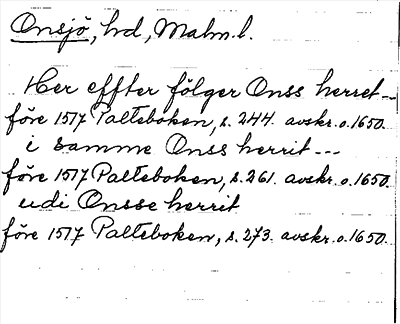 Onsjö, hd, Malm.l.
Her effter fölger Onss herret--
före 1517 Palteboken, s. 244. avskr.o.1650.
i samme Onss herrit ---
före 1517 Palteboken, s. 261. avskr.o.1650.
udi Onsse herrit
före 1517 Palteboken, s. 273. avskr.o.1650.